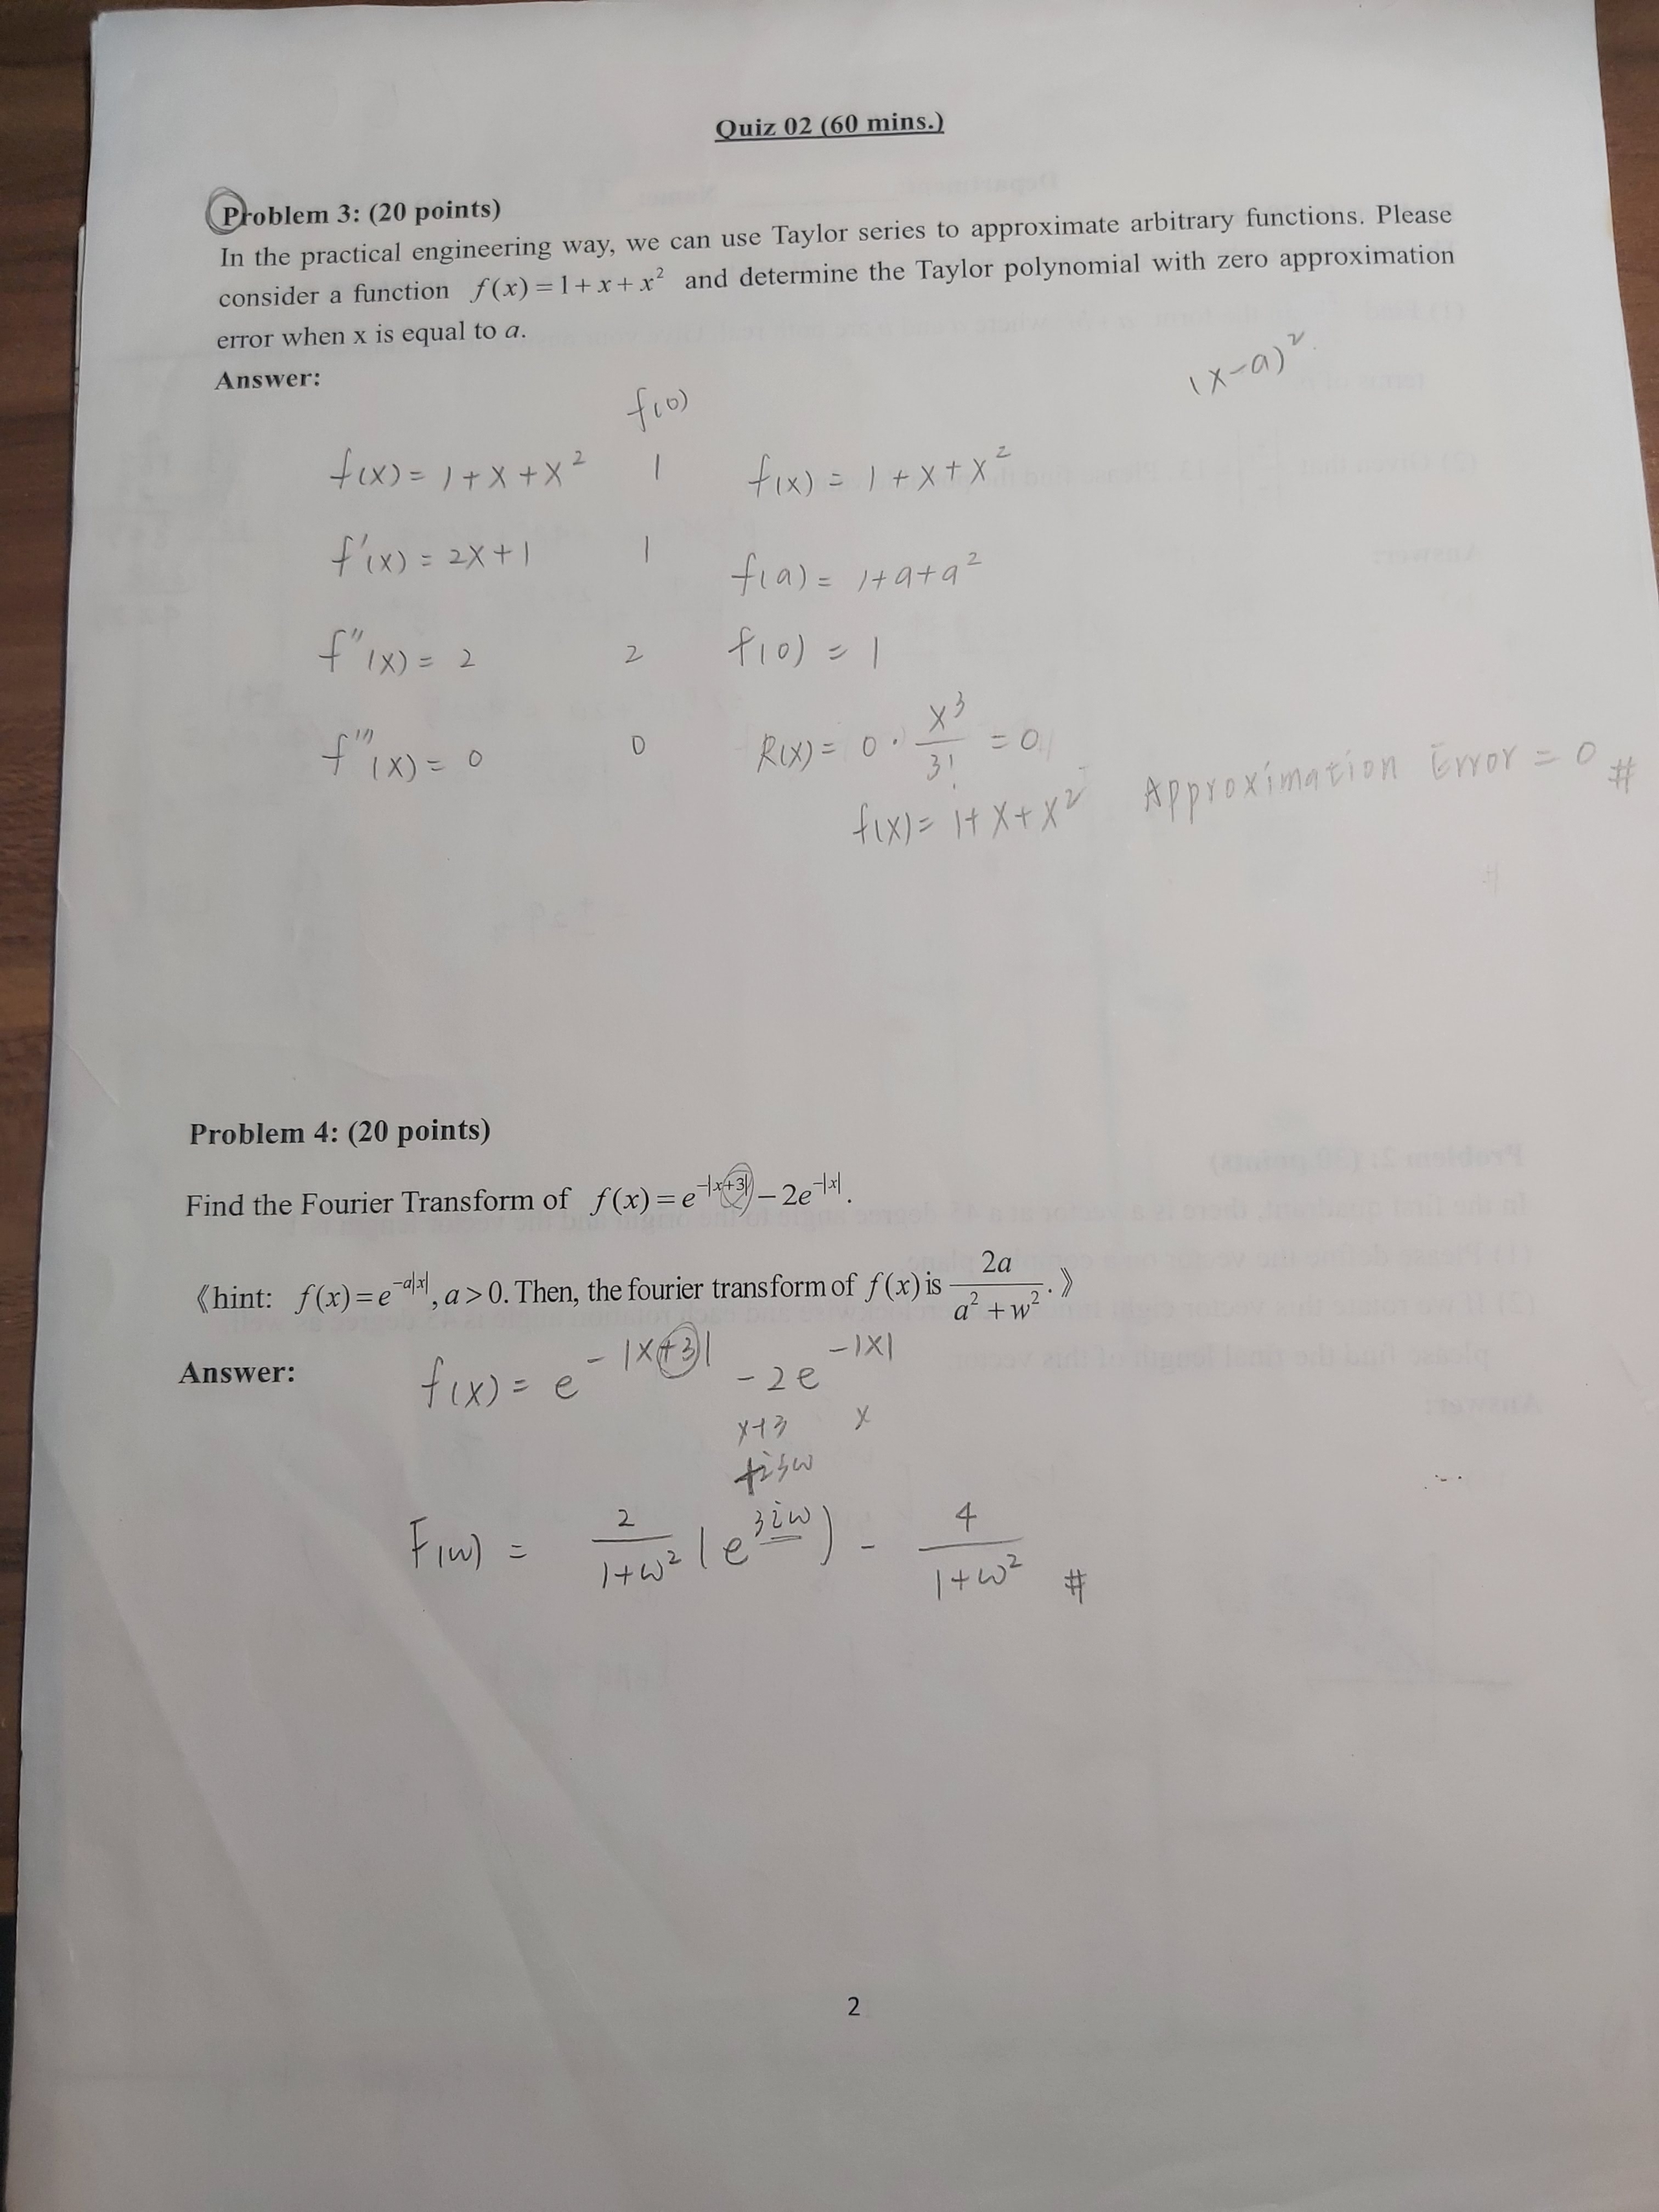 Quiz 02 (60 mins.)
Problem 3: (20 points)
In the practical engineering way, we can use Taylor series to approximate arbitrary functions. Please
consider a function f(x)=1+x+x² and determine the Taylor polynomial with zero approximation
error when x is equal to a.
(x-a)²
Answer:
f(0)
f(x) = 1+x+x² 1 f(x) = 1+x+x²
f'(x) = 2x+1 1 f(a) = 1+a+a²
f''(x) = 2 2 f(0) = 1
f'''(x) = 0 0 R(x) = 0 · x³/3! = 0
f(x) = 1+x+x² Approximation Error = 0 #
Problem 4: (20 points)
Find the Fourier Transform of f(x)=e^{-|x+3|}-2e^{-|x|}.
《hint: f(x)=e^{-a|x|}, a>0. Then, the fourier transform of f(x) is 2a/(a²+w²).》
Answer: f(x) = e^{-|x+3|} -2e^{-|x|}
x+3 x
+i3w
F(w) = 2/(1+w²) (e^{3iw}) - 4/(1+w²) #
2